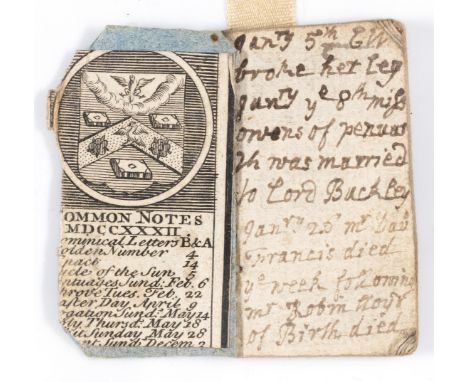 OMMON NOTES
MDCCXXXII
ominical Letters B&A
olden Number 4
pact 14
ycle of the Sun 5
ntuages Sund: Feb. 6
hrove Tues. Feb. 22
aster Day, April 9
ogation Sund: May 14
oly Thursd: May 18
hit Sunday May 28
ent Sund: Decem 3
Janry 5th
broke her leg
Janry ye 8th miss
owens of penuar
th was married
to Lord Buckley
Janry 20 mr Dav
Francis died
ye week folowing
mr Robin
of Birth died